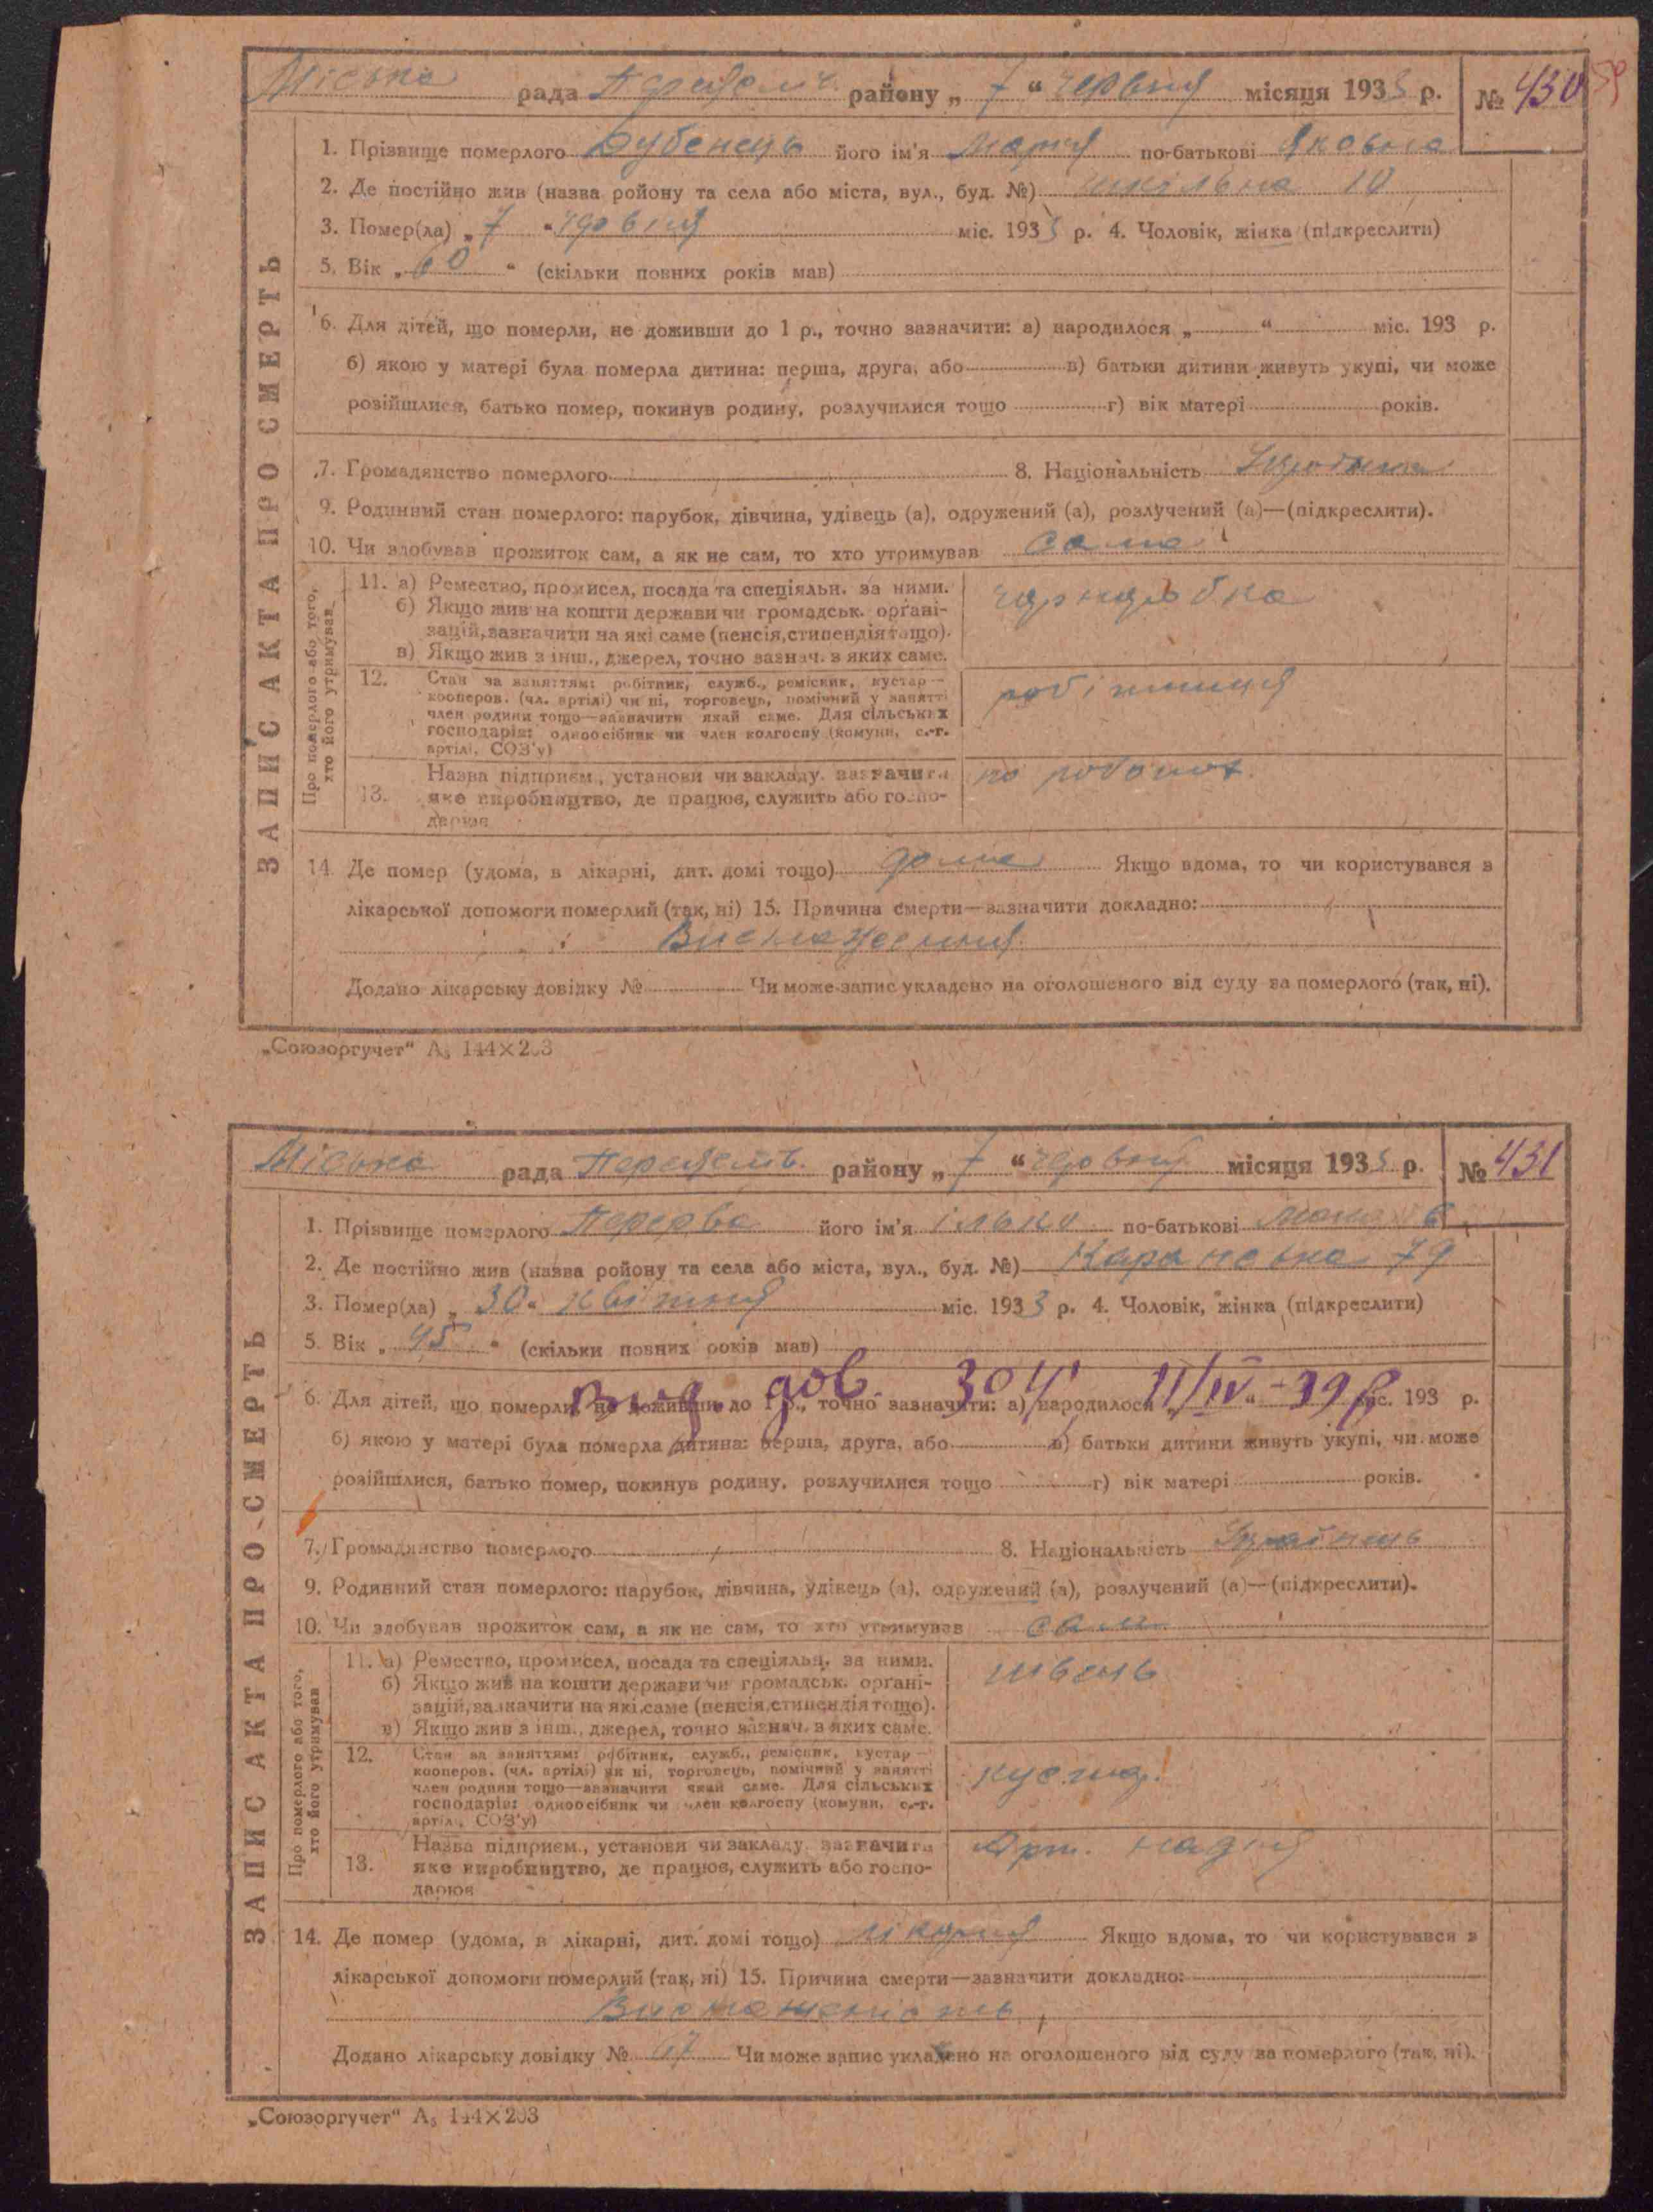 Міська рада Переяслів. району „ 7 “ червня місяця 1933 р. № 430
59
1. Прізвище померлого Дубенець його ім'я Марія по-батькові Яковна
2. Де постійно жив (назва ройону та села або міста, вул., буд. №) Шкільна 10
3. Помер(ла) „ 7 “ червня міс. 1933 р. 4. Чоловік, жінка (підкреслити)
5. Вік „ 60 “ (скільки повних років мав)
6. Для дітей, що померли, не доживши до 1 р., точно зазначити: а) народилося „ “ міс. 193 р.
б) якою у матері була померла дитина: перша, друга, або в) батьки дитини живуть укупі, чи може
розійшлися, батько помер, покинув родину, розлучилися тощо г) вік матері років.
7. Громадянство померлого 8. Національність
9. Родинний стан померлого: парубок, дівчина, удівець (а), одружений (а), розлучений (а)—(підкреслити).
10. Чи здобував прожиток сам, а як не сам, то хто утримував сама
ЗАПИС АКТА ПРО СМЕРТЬ
Про померлого або того,
хто його утримував
11. а) Ремество, промисел, посада та спеціяльн. за ними.
б) Якщо жив на кошти держави чи громадськ. орґані-
зацій, зазначити на які саме (пенсія, стипендія тощо).
в) Якщо жив з інш., джерел, точно зазнач. з яких саме.
чорноробка
12. Стан за заняттям: робітник, служб., ремісник, кустар—
кооперов. (чл. артілі) чи ні, торговець, помічний у занятті
член родини тощо—зазначити який саме. Для сільських
господарів: одноосібник чи член колгоспу (комуни, с.-г.
артілі, СОЗ'у)
робітниця
13. Назва підприєм., установи чи закладу, зазначити
яке виробництво, де працює, служить або госпо-
дарює
по роботах
14. Де помер (удома, в лікарні, дит. домі тощо) дома Якщо вдома, то чи користувався з
лікарської допомоги померлий (так, ні) 15. Причина смерти—зазначити докладно:
Виснаження
Додано лікарську довідку № Чи може запис укладено на оголошеного від суду за померлого (так, ні).
„Союзоргучет“ А₅ 144×203
Міська рада Переяслів. району „ 7 “ червня місяця 1933 р. № 431
1. Прізвище померлого Перерва його ім'я Ілько по-батькові
2. Де постійно жив (назва ройону та села або міста, вул., буд. №) 79
3. Помер(ла) „ 30 “ квітня міс. 1933 р. 4. Чоловік, жінка (підкреслити)
5. Вік „ 45 “ (скільки повних років мав)
Вид. дов. 304 11/IV-39 р
6. Для дітей, що померли, не доживши до 1 р., точно зазначити: а) народилося „ “ міс. 193 р.
б) якою у матері була померла дитина: перша, друга, або в) батьки дитини живуть укупі, чи може
розійшлися, батько помер, покинув родину, розлучилися тощо г) вік матері років.
7. Громадянство померлого 8. Національність Українець
9. Родинний стан померлого: парубок, дівчина, удівець (а), одружений (а), розлучений (а)—(підкреслити).
10. Чи здобував прожиток сам, а як не сам, то хто утримував сам
ЗАПИС АКТА ПРО СМЕРТЬ
Про померлого або того,
хто його утримував
11. а) Ремество, промисел, посада та спеціяльн. за ними.
б) Якщо жив на кошти держави чи громадськ. орґані-
зацій, зазначити на які саме (пенсія, стипендія тощо).
в) Якщо жив з інш., джерел, точно зазнач. з яких саме.
швець
12. Стан за заняттям: робітник, служб., ремісник, кустар—
кооперов. (чл. артілі) чи ні, торговець, помічний у занятті
член родини тощо—зазначити який саме. Для сільських
господарів: одноосібник чи член колгоспу (комуни, с.-г.
артілі, СОЗ'у)
кустар
13. Назва підприєм., установи чи закладу, зазначити
яке виробництво, де працює, служить або госпо-
дарює
Арт. Надія
14. Де помер (удома, в лікарні, дит. домі тощо) лікарня Якщо вдома, то чи користувався з
лікарської допомоги померлий (так, ні) 15. Причина смерти—зазначити докладно:
Виснаженість
Додано лікарську довідку № 67 Чи може запис укладено на оголошеного від суду за померлого (так, ні).
„Союзоргучет“ А₅ 144×203